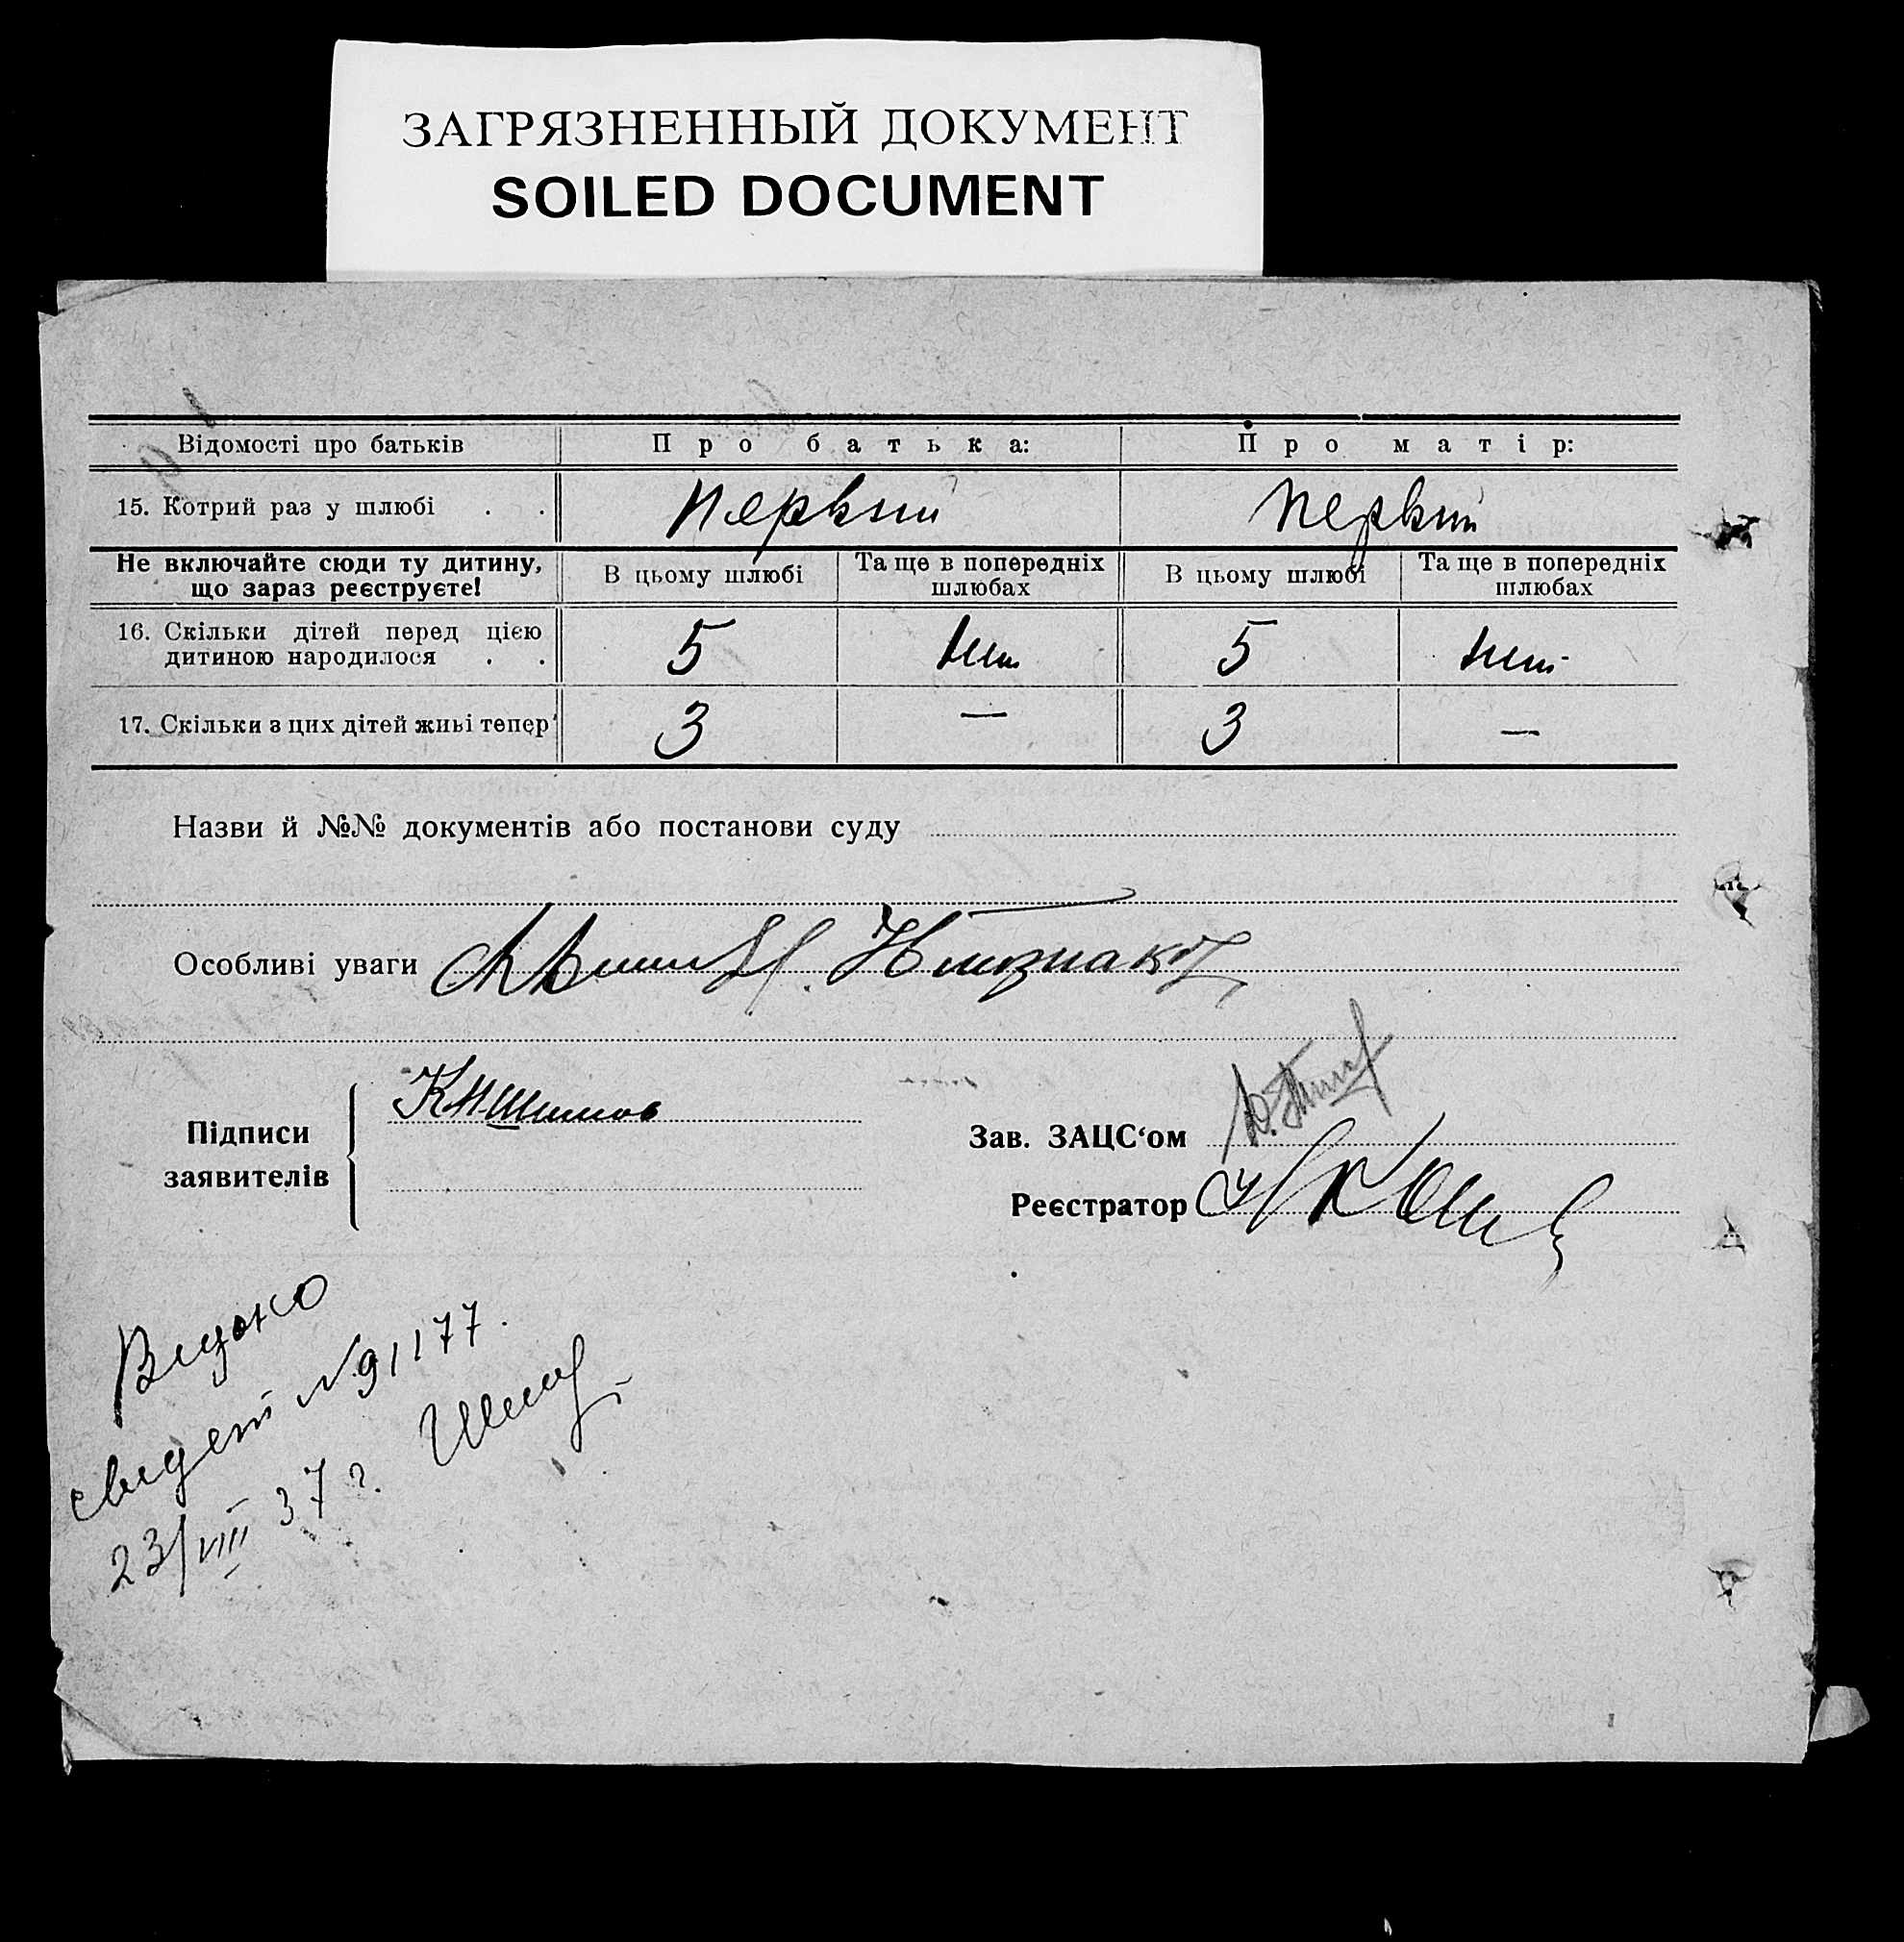 ЗАГРЯЗНЕННЫЙ ДОКУМЕНТ
SOILED DOCUMENT
Відомості про батьків Про батька: Про матір:
15. Котрий раз у шлюбі . . первый первый
Не включайте сюди ту дитину, що зараз реєструєте! В цьому шлюбі Та ще в попередніх шлюбах В цьому шлюбі Та ще в попередніх шлюбах
16. Скільки дітей перед цією
дитиною народилося . . 5 нет 5 нет
17. Скільки з цих дітей живі тепер 3 — 3 —
Назви й №№ документів або постанови суду
Особливі уваги
Підписи
заявителів
Зав. ЗАЦС‘ом
Реєстратор
свидет №91177.
23/VIII 37 г.